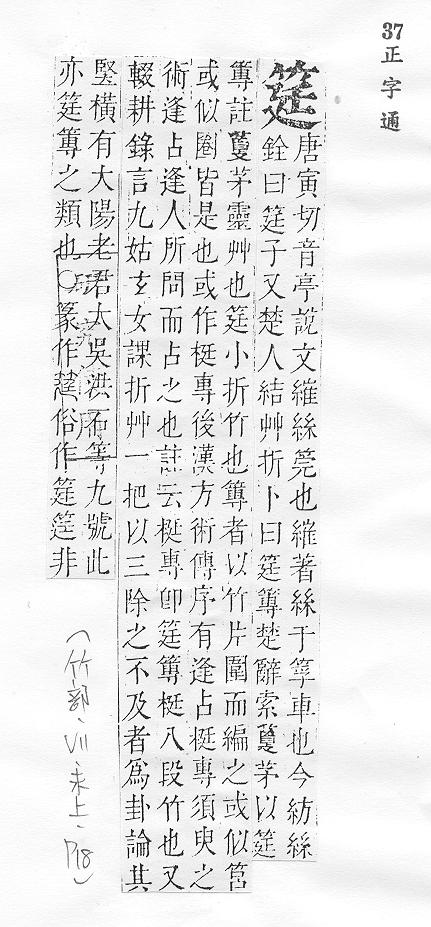 37
正字通
筳
唐寅切音亭說文繀絲筦也繀著絲于筟車也今紡絲
銓曰筳子又楚人結艸折卜曰筳篿楚辭索藑茅以筳
篿註藑茅靈艸也筳小折竹也篿者以竹片圍而編之或似筥
或似圏皆是也或作梃專後漢方術傳序有逢占梃專須臾之
術逢占逢人所問而占之也註云梃專卽筳篿梃八段竹也又
輟耕錄言九姑玄女課折艸一把以三除之不及者爲卦論其
竪橫有大陽老君太吳洪石等九號此
亦筳篿之類也○篆作俗作筳筵非
(竹部、VII、未上、P18)